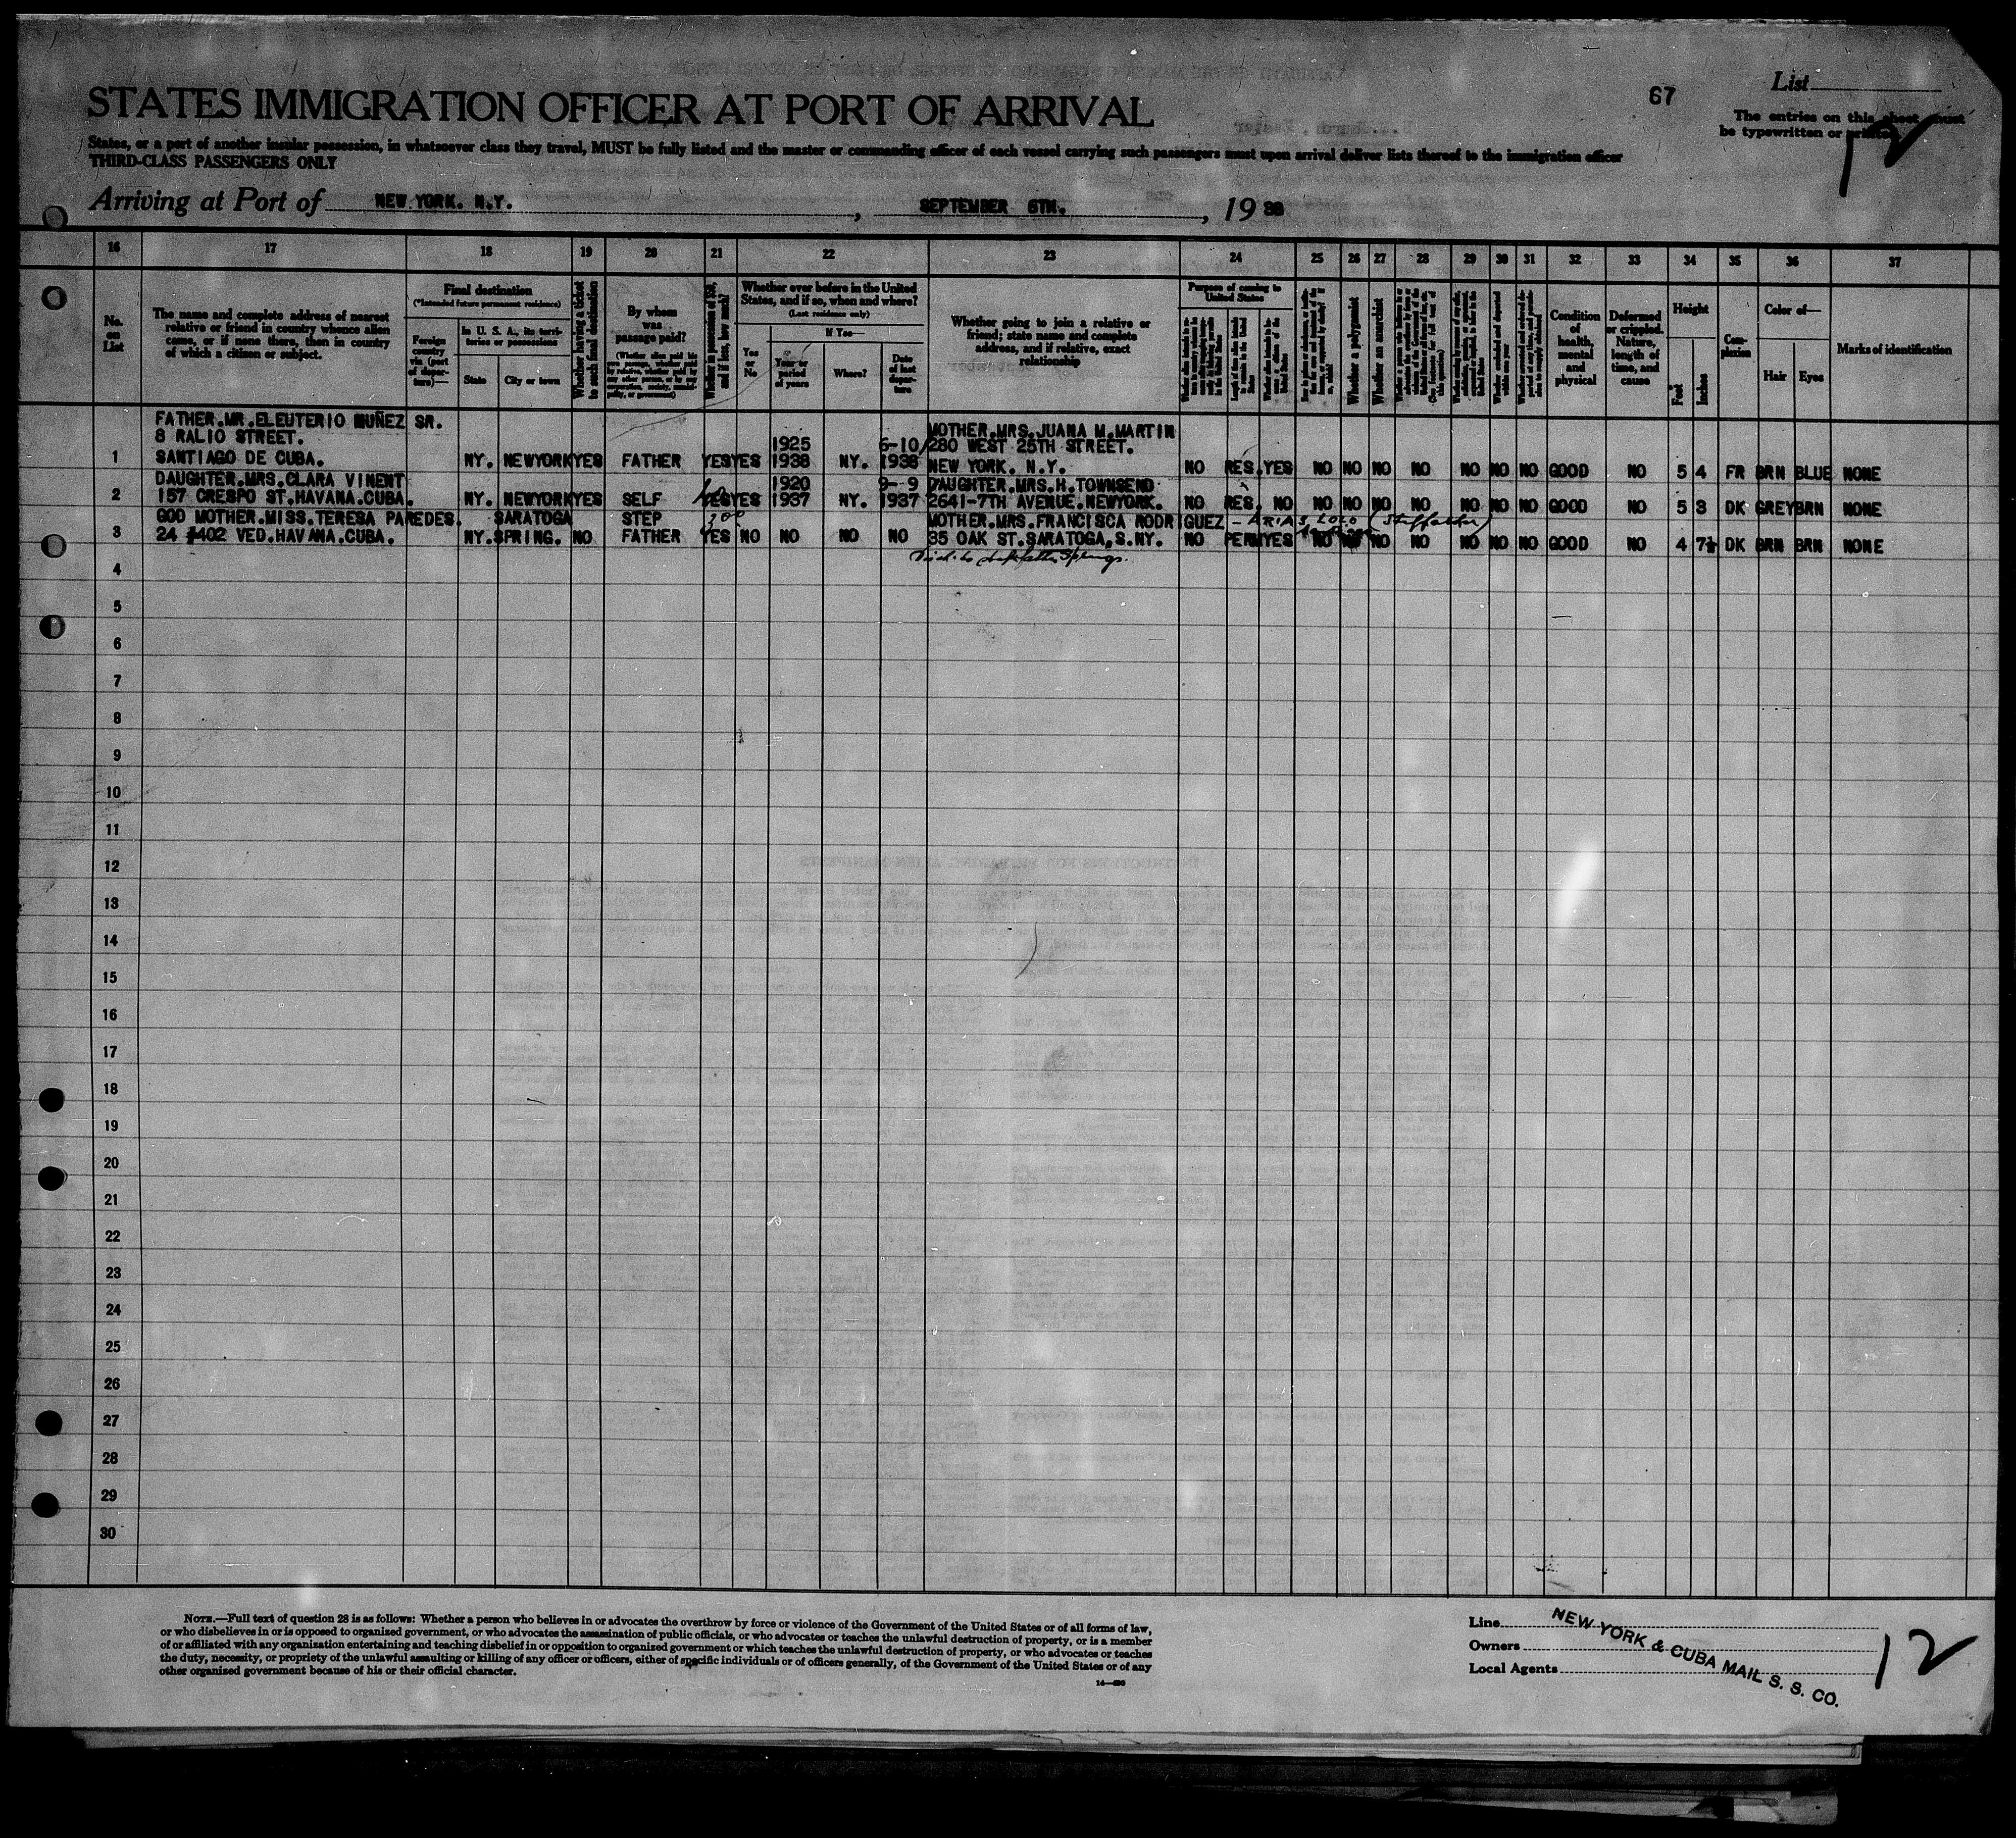 67
List
STATES IMMIGRATION OFFICER AT PORT OF ARRIVAL
The entries on this sheet must
be typewritten or printed.
12
States, or a part of another insular possession, in whatsoever class they travel, MUST be fully listed and the master or commanding officer of each vessel carrying such passengers must upon arrival deliver lists thereof to the immigration officer
THIRD-CLASS PASSENGERS ONLY
Arriving at Port of NEW YORK. N.Y. , SEPTEMBER 6TH. , 19 38
16 17 18 19 20 21 22 23 24 25 26 27 28 29 30 31 32 33 34 35 36 37
No. on List
The name and complete address of nearest relative or friend in country whence alien came, or if none there, then in country of which a citizen or subject.
Final destination
(*Intended future permanent residence)
Foreign country via (port of departure)—
In U. S. A., its territories or possessions
State
City or town
Whether having a ticket to such final destination
By whom was passage paid?
Whether in possession of $50, and if less, how much?
Whether ever before in the United States, and if so, when and where?
(Last residence only)
Yes or No
If Yes—
Year or period of years
Where?
Date of last departure
Whether going to join a relative or friend; state name and complete address, and if relative, exact relationship
Purpose of coming to United States
Whether a polygamist
Whether an anarchist
Condition of health, mental and physical
Deformed or crippled. Nature, length of time, and cause
Height
Feet
Inches
Complexion
Color of—
Hair
Eyes
Marks of identification
FATHER.MR.ELEUTERIO MUÑEZ SR.
8 RALIO STREET. 1925 6-10/ MOTHER.MRS.JUANA M.MARTIN
280 WEST 25TH STREET.
1 SANTIAGO DE CUBA. NY. NEWYORK YES FATHER YES YES 1938 NY. 1938 NEW YORK. N.Y. NO RES. YES NO NO NO NO NO NO NO GOOD NO 5 4 FR BRN BLUE NONE
DAUGHTER.MRS.CLARA VINENT 1920 9- 9 DAUGHTER.MRS.H.TOWNSEND
2 157 CRESPO ST.HAVANA.CUBA. NY. NEWYORK YES SELF YES YES 1937 NY. 1937 2641-7TH AVENUE.NEWYORK. NO RES. NO NO NO NO NO NO NO NO GOOD NO 5 3 DK GREY BRN NONE
GOD MOTHER.MISS.TERESA PAREDES. SARATOGA STEP 300 MOTHER.MRS.FRANCISCA RODRIGUEZ - ARIAS (Stepfather)
3 24 #402 VED.HAVANA.CUBA. NY. SPRING. NO FATHER YES NO NO NO NO 35 OAK ST.SARATOGA,S.NY. NO PERM YES NO NO NO NO NO NO NO GOOD NO 4 7½ DK BRN BRN NONE
4
5
6
7
8
9
10
11
12
13
14
15
16
17
18
19
20
21
22
23
24
25
26
27
28
29
30
NOTE.—Full text of question 28 is as follows: Whether a person who believes in or advocates the overthrow by force or violence of the Government of the United States or of all forms of law,
or who disbelieves in or is opposed to organized government, or who advocates the assassination of public officials, or who advocates or teaches the unlawful destruction of property, or is a member
of or affiliated with any organization entertaining and teaching disbelief in or opposition to organized government or which teaches the unlawful destruction of property, or who advocates or teaches
the duty, necessity, or propriety of the unlawful assaulting or killing of any officer or officers, either of specific individuals or of officers generally, of the Government of the United States or of any
other organized government because of his or their official character.
Line
Owners
Local Agents
NEW YORK & CUBA MAIL S. S. CO.
12